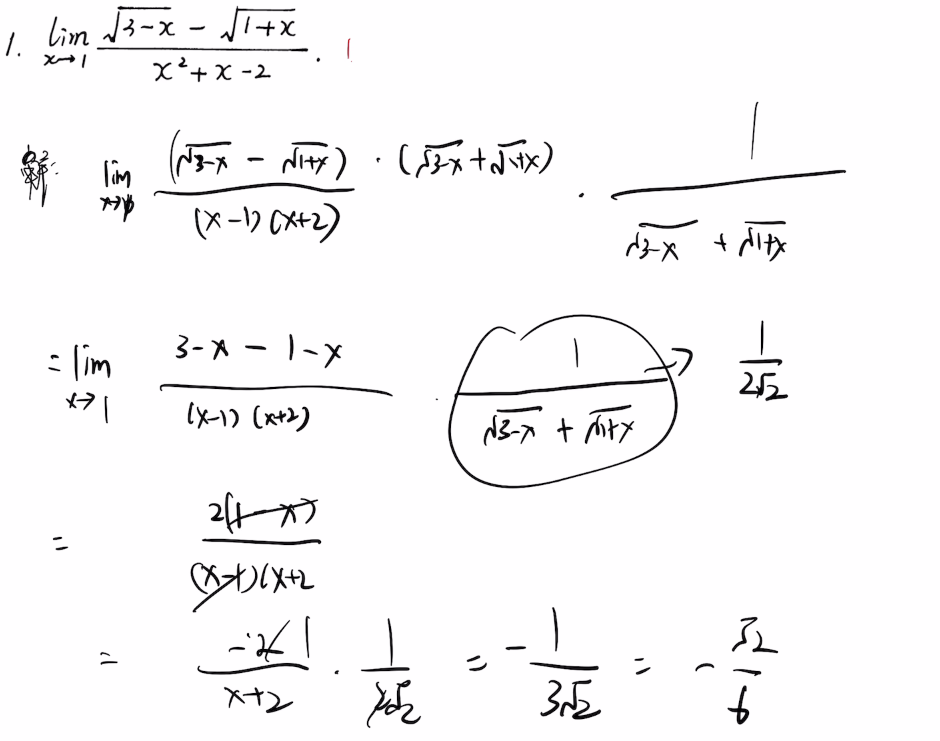 1. lim x→1 (√(3-x) - √(1+x)) / (x² + x - 2) . 1
解: lim x→1 (√(3-x) - √(1+x)) / ((x-1)(x+2)) · (√(3-x) + √(1+x)) · 1 / (√(3-x) + √(1+x))
= lim x→1 (3-x-1-x) / ((x-1)(x+2)) · 1 / (√(3-x) + √(1+x)) → 1 / (2√2)
= 2(1-x) / (x-1)(x+2
= -2 1 / (x+2) · 1 / (2√2) = - 1 / (3√2) = - √2 / 6